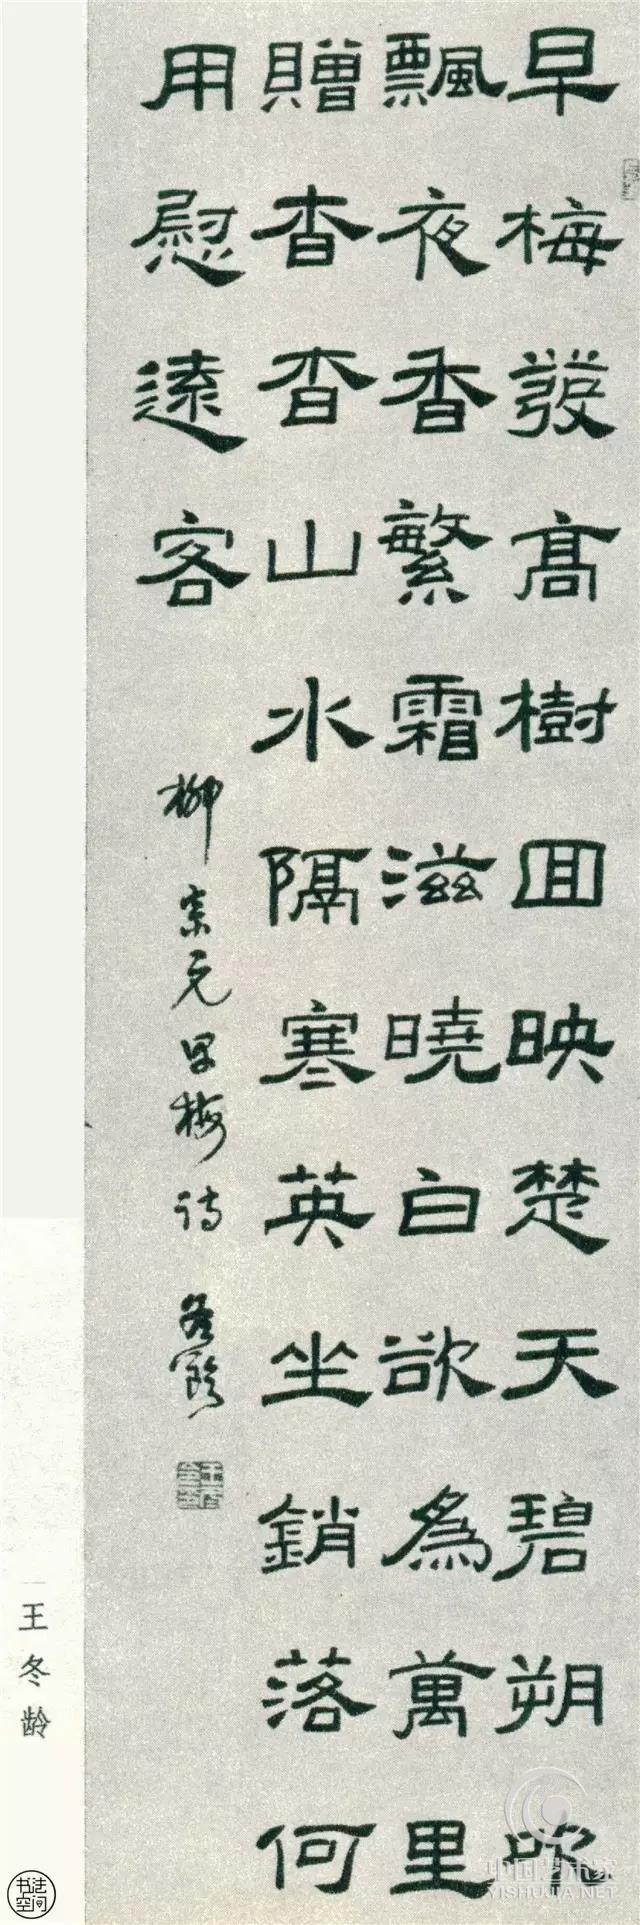 早梅發高樹囬映楚天碧朔吹
飄夜香繁霜滋曉白欲為萬里
贈杳杳山水隔寒英坐銷落何
用慰遠客
柳宗元早梅诗 冬齡
王冬龄
书法空间
中国艺术家
YISHUJIA.NET